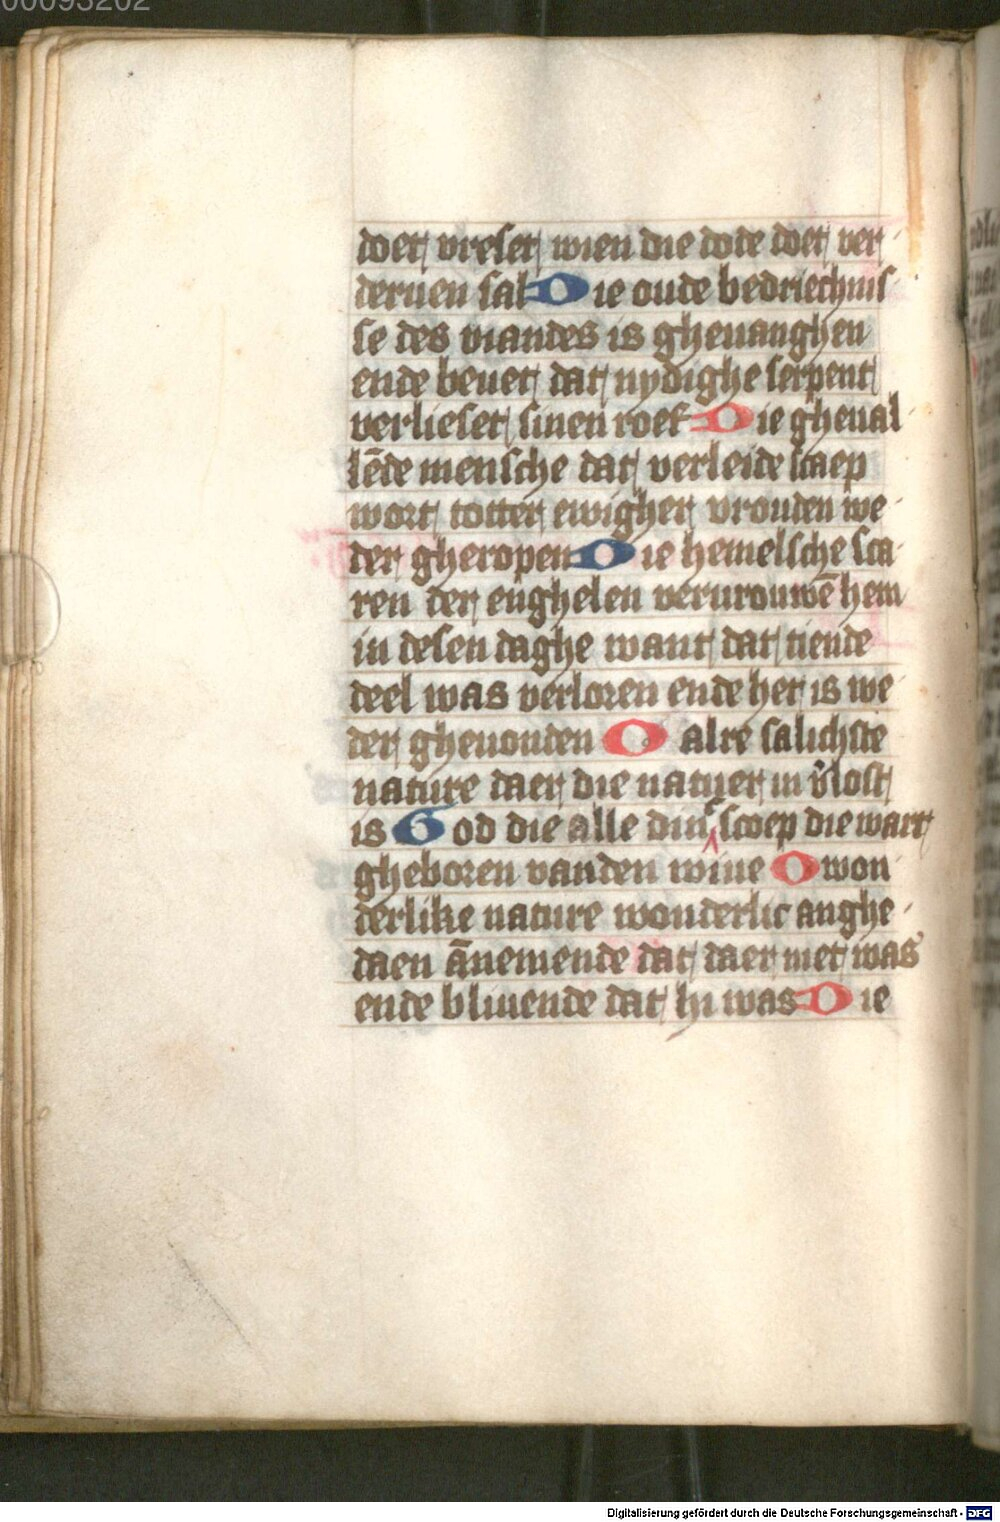 00093202
doet vreset wien die dode doet ver
deruen sal Die oude bedriechnis
se des viandes is gheuanghen
ende beuet dat nydighe serpent
verlieset sinen roef Die gheual
lēde mensche dat verleide scaep
wort totter ewigher vrouden we
der gheropen Die hemelsche sca
ren der enghelen verurouwē hem
in desen daghe want dat tiende
deel was verloren ende het is we
der gheuonden O alre salichste
nature daer die natuer in v̄lost
is God die alle dinc scoep die wart
gheboren vanden wiue O won
derlike nature wonderlic anghe
daen ānemende dat daer met was
ende bliuende dat hi was Die
Digitalisierung gefördert durch die Deutsche Forschungsgemeinschaft - DFG